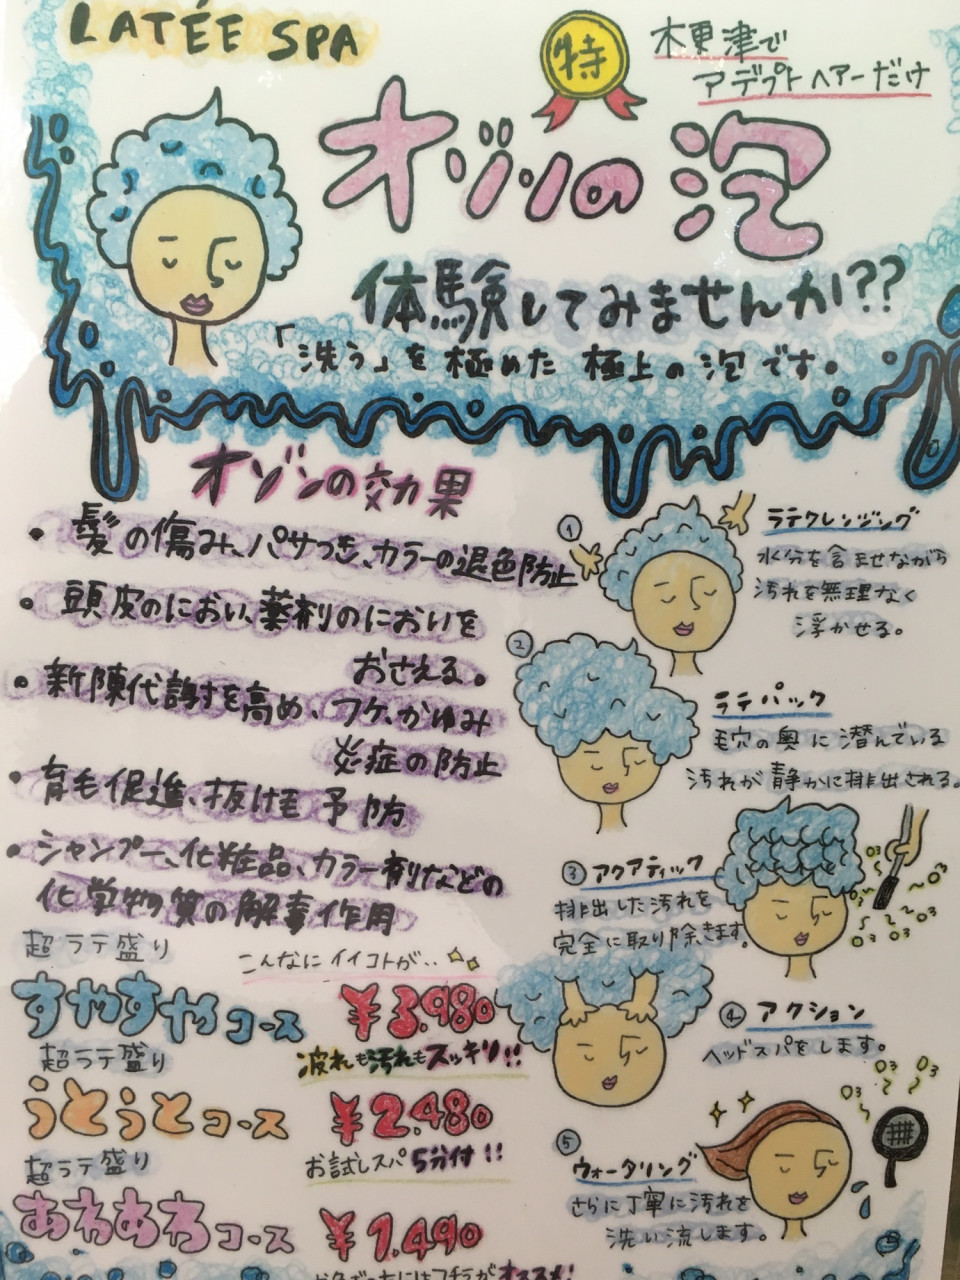 LATÉE SPA
特
木更津で
アデプトヘアーだけ
オゾンの泡
体験してみませんか??
「洗う」を極めた極上の泡です。
オゾンの効果
・髪の傷み、パサつき、カラーの退色防止
・頭皮のにおい、薬剤のにおいを
おさえる。
・新陳代謝を高め、フケ、かゆみ
炎症の防止
・育毛促進、抜け毛予防
・シャンプー、化粧品、カラー剤などの
化学物質の解毒作用
超ラテ盛り
こんなにイイコトが‥
すやすやコース ¥3.980
超ラテ盛り
疲れも汚れもスッキリ!!
うとうとコース ¥2.480
超ラテ盛り
お試しスパ5分付!!
あわあわコース ¥1.490
① ラテクレンジング
水分を含ませながら
汚れを無理なく
浮かせる。
② ラテパック
毛穴の奥に潜んでいる
汚れが静かに排出される。
③ アクアティック
排出した汚れを
完全に取り除きます。
O3 O3 O3 O3 O3
④ アクション
ヘッドスパをします。
O3 O3 O3
⑤ ウォータリング
さらに丁寧に汚れを
洗い流します。